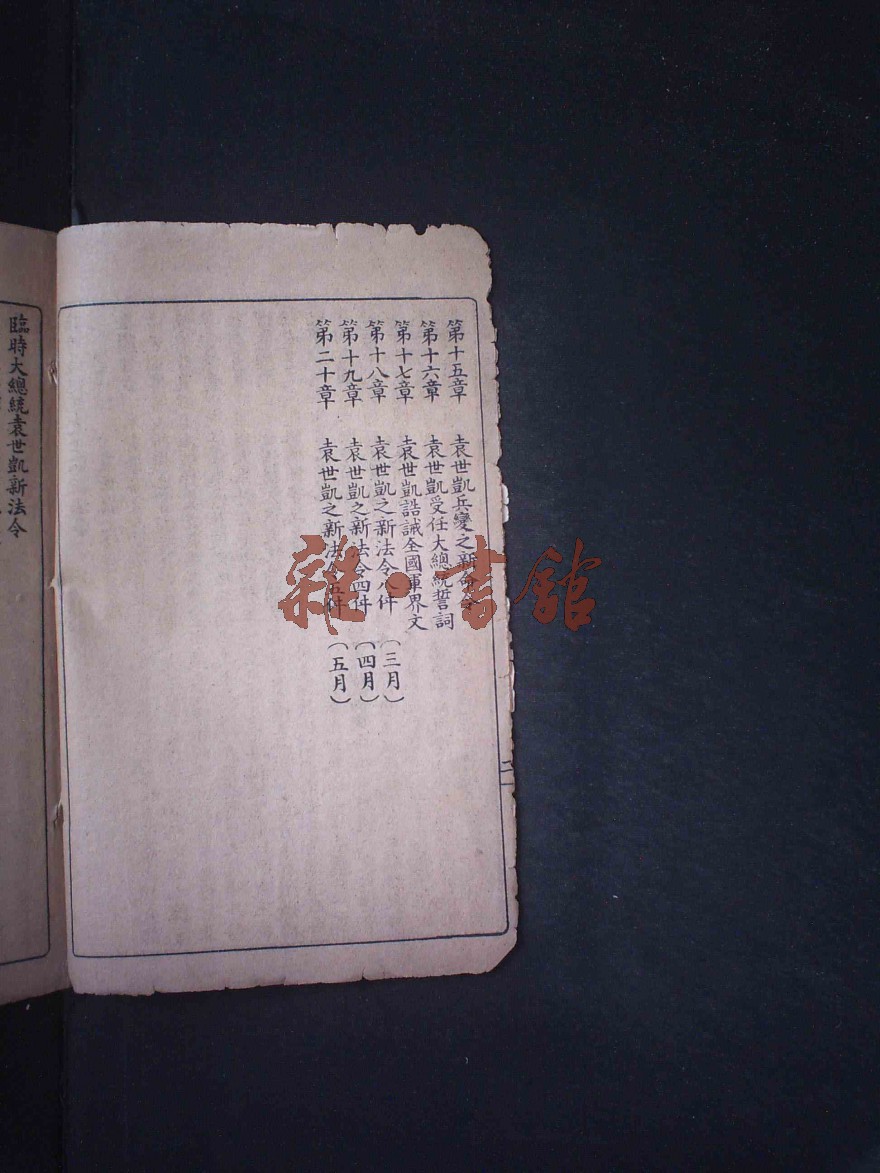 第十五章 袁世凱兵變之新命令
第十六章 袁世凱受任大總統誓詞
第十七章 袁世凱誥誡全國軍界文
第十八章 袁世凱之新法令八件 (三月)
第十九章 袁世凱之新法令四件 (四月)
第二十章 袁世凱之新法令五件 (五月)
二
臨時大總統袁世凱新法令
雜·書館